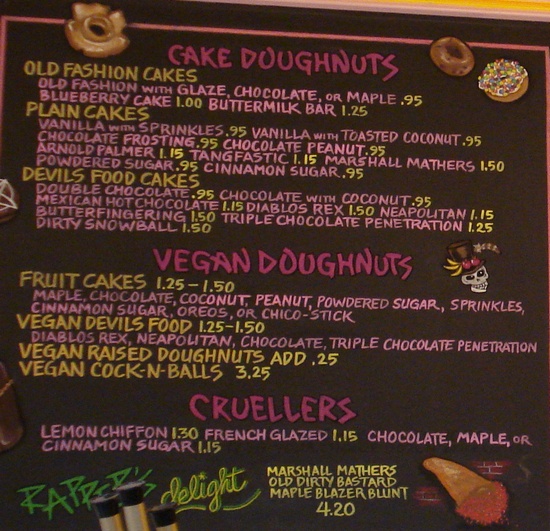 CAKE DOUGHNUTS
OLD FASHION CAKES
OLD FASHION WITH GLAZE, CHOCOLATE, OR MAPLE .95
BLUEBERRY CAKE 1.00 BUTTERMILK BAR 1.25
PLAIN CAKES
VANILLA WITH SPRINKLES .95 VANILLA WITH TOASTED COCONUT .95
CHOCOLATE FROSTING .95 CHOCOLATE PEANUT .95
ARNOLD PALMER 1.15 TANGFASTIC 1.15 MARSHALL MATHERS 1.50
POWDERED SUGAR .95 CINNAMON SUGAR .95
DEVILS FOOD CAKES
DOUBLE CHOCOLATE .95 CHOCOLATE WITH COCONUT .95
MEXICAN HOT CHOCOLATE 1.15 DIABLOS REX 1.50 NEAPOLITAN 1.15
BUTTERFINGERING 1.50 TRIPLE CHOCOLATE PENETRATION 1.25
DIRTY SNOWBALL 1.50
VEGAN DOUGHNUTS
FRUIT CAKES 1.25-1.50
MAPLE, CHOCOLATE, COCONUT, PEANUT, POWDERED SUGAR, SPRINKLES,
CINNAMON SUGAR, OREOS, OR CHICO-STICK
VEGAN DEVILS FOOD 1.25-1.50
DIABLOS REX, NEAPOLITAN, CHOCOLATE, TRIPLE CHOCOLATE PENETRATION
VEGAN RAISED DOUGHNUTS ADD .25
VEGAN COCK-N-BALLS 3.25
CRUELLERS
LEMON CHIFFON 1.30 FRENCH GLAZED 1.15 CHOCOLATE, MAPLE, OR
CINNAMON SUGAR 1.15
RAPPER'S delight
MARSHALL MATHERS
OLD DIRTY BASTARD
MAPLE BLAZER BLUNT
4.20